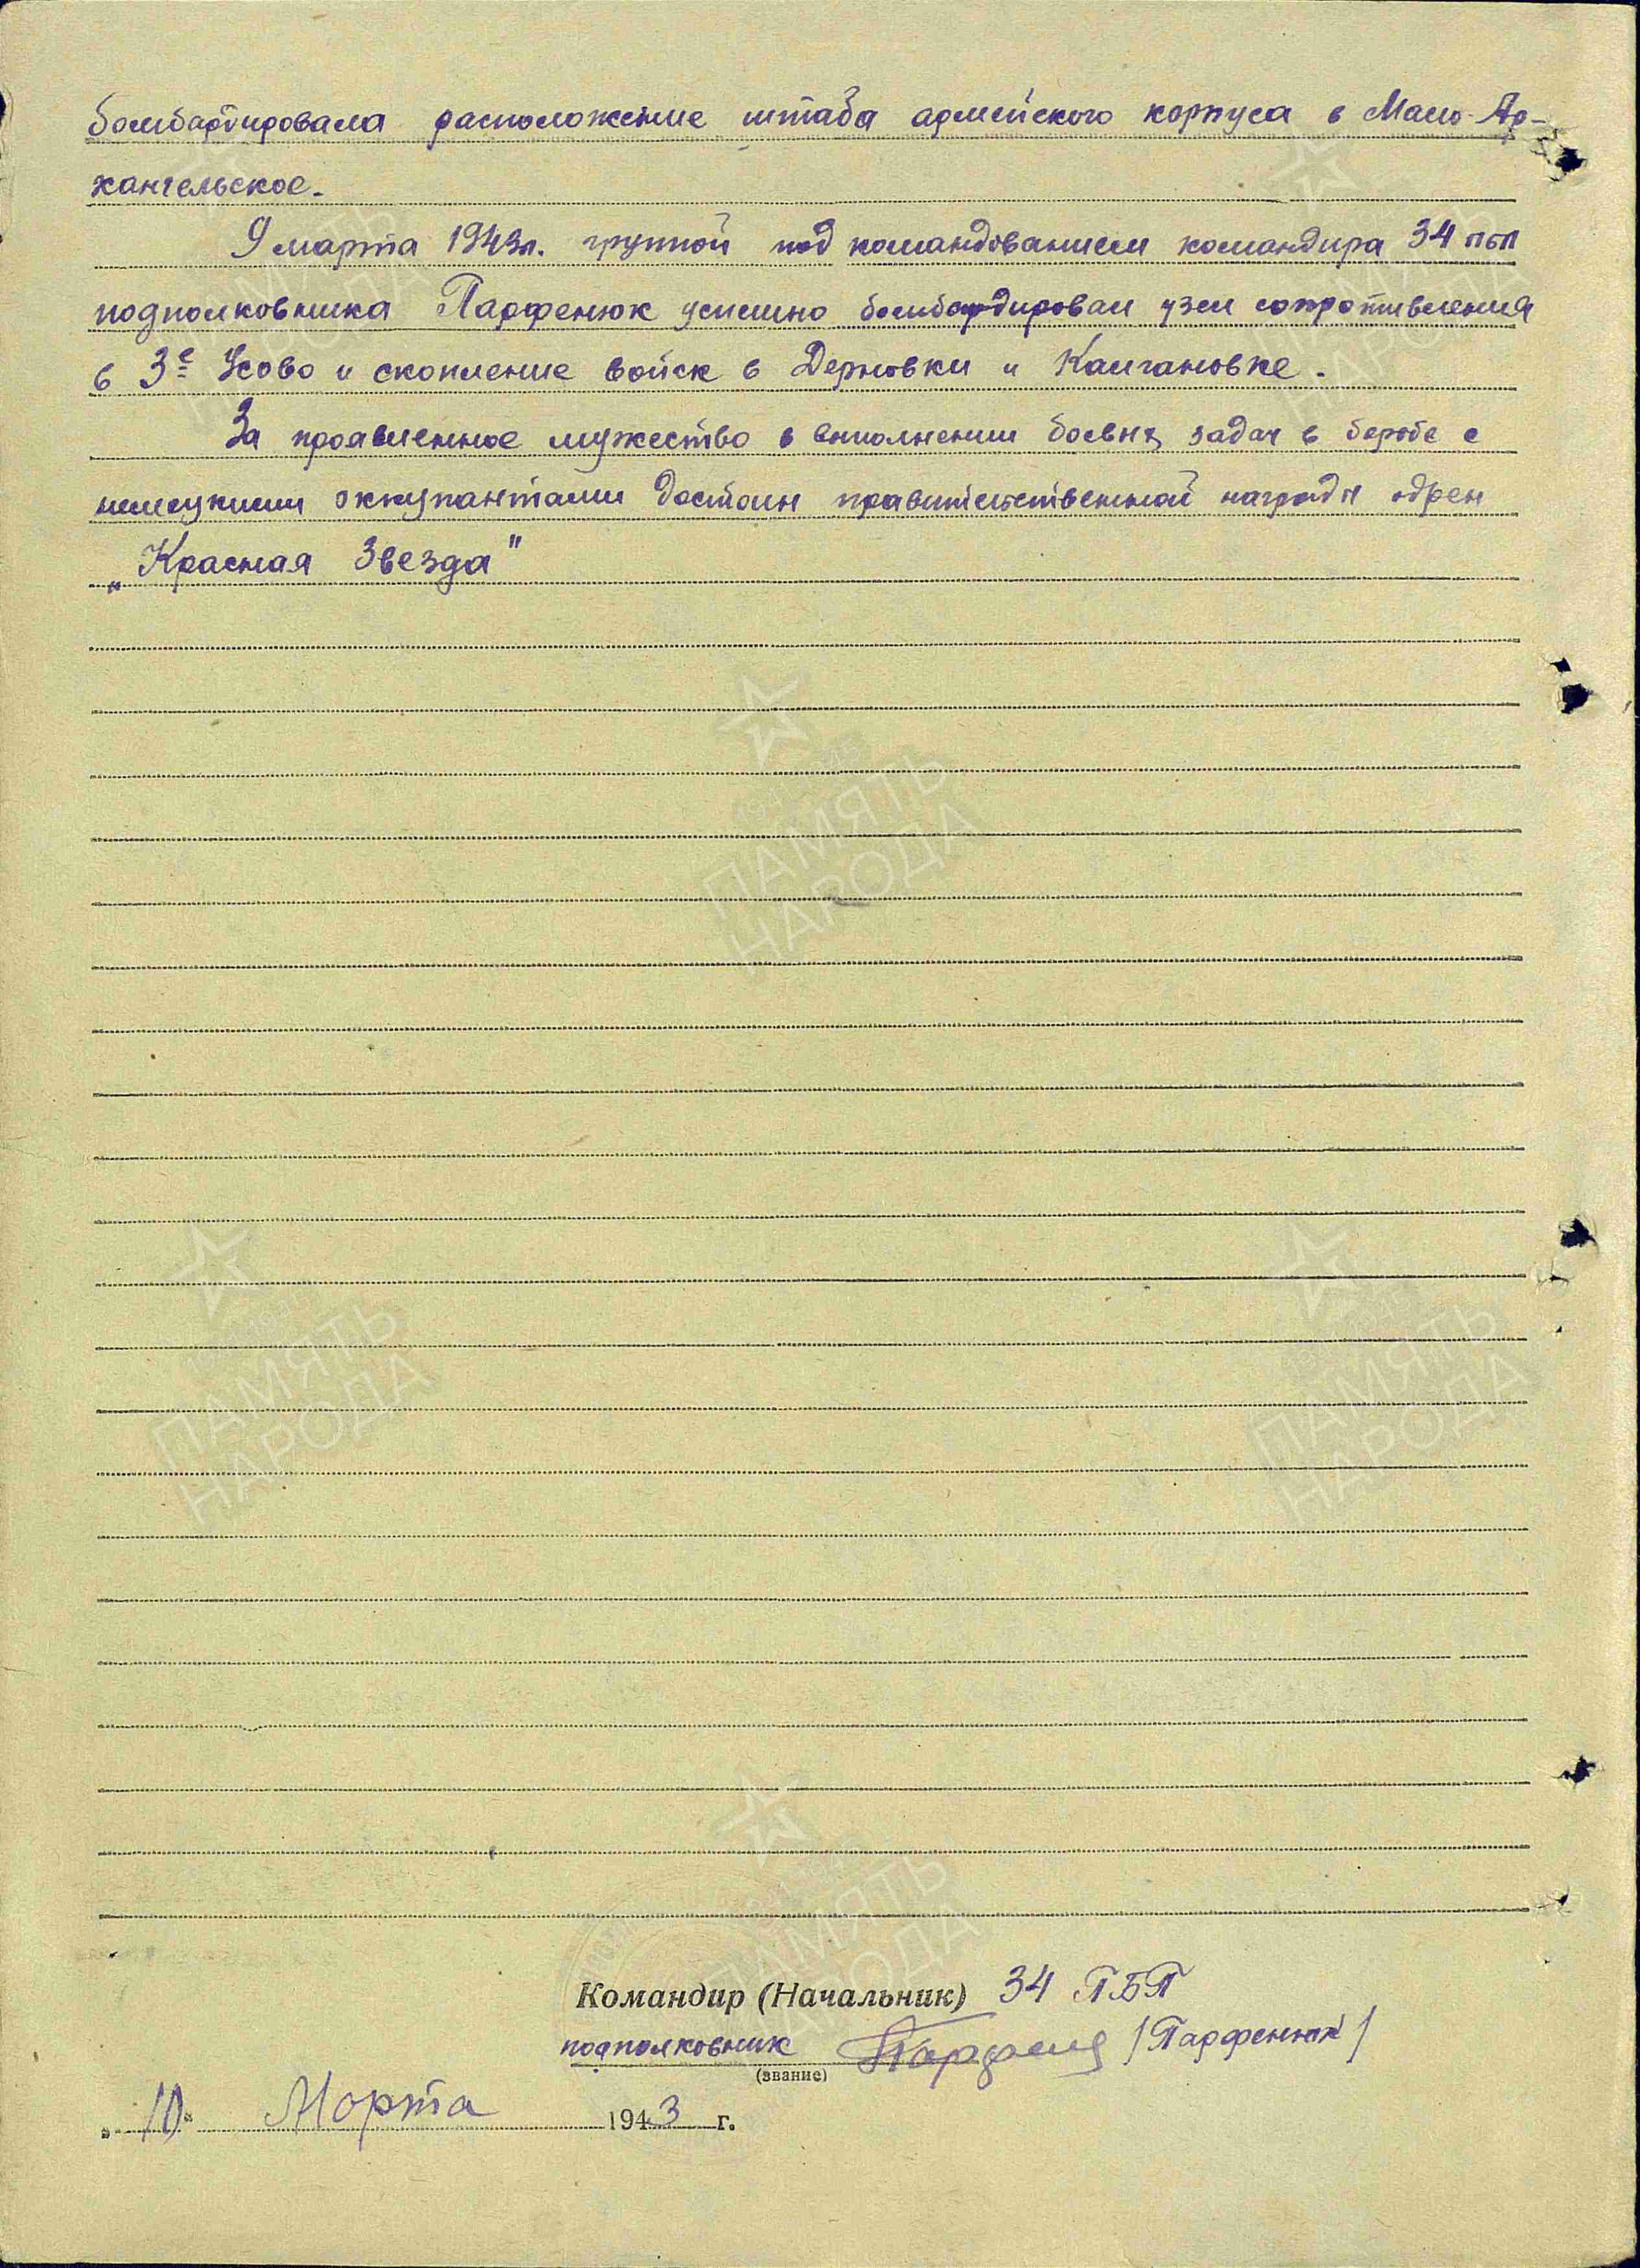 бомбардировала расположение штаба армейского корпуса в Мало-Ар-
хангельское.
9 марта 1943г. группой под командованием командира 34 пбп
подполковника Парфенюк успешно бомбардировал узел сопротивления
в 3е Усово и скопление войск в Дерновки и Калгановке.
За проявленное мужество в выполнении боевых задач в борьбе с
немецкими оккупантами достоин правительственной награды орден
„Красная Звезда"
Командир (Начальник) 34 ПБП
подполковник /Парфенюк/
(звание)
„10" Марта 1943 г.
ПАМЯТЬ
НАРОДА